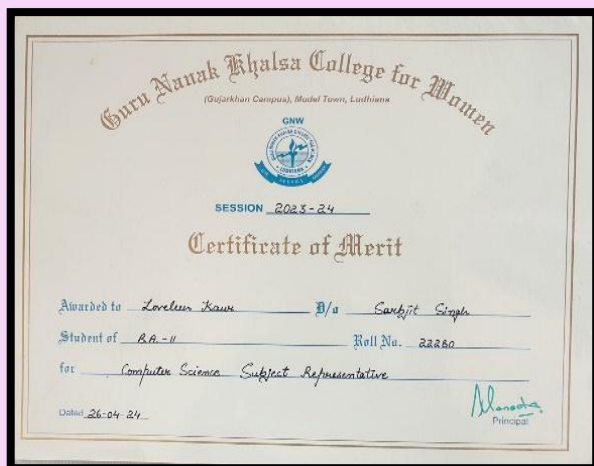 Guru Nanak Khalsa College for Women
(Gujarkhan Campus), Model Town, Ludhiana
GNW
LUDHIANA
SESSION 2023-24
Certificate of Merit
Awarded to Loveleen Kaur D/o Sarbjit Singh
Student of B.A.-II Roll No. 22280
for Computer Science Subject Representative
Dated 26-04-24
Principal